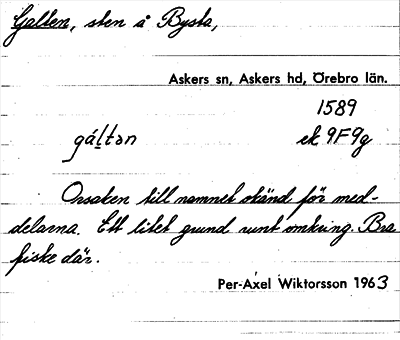 Galten, sten å Bysta,
Askers sn, Askers hd, Örebro län.
1589
gál̲tən ek 9F9g
Orsaken till namnet okänd för med-
delarna. Ett litet grund runt omkring. Bra
fiske där.
Per-Axel Wiktorsson 1963